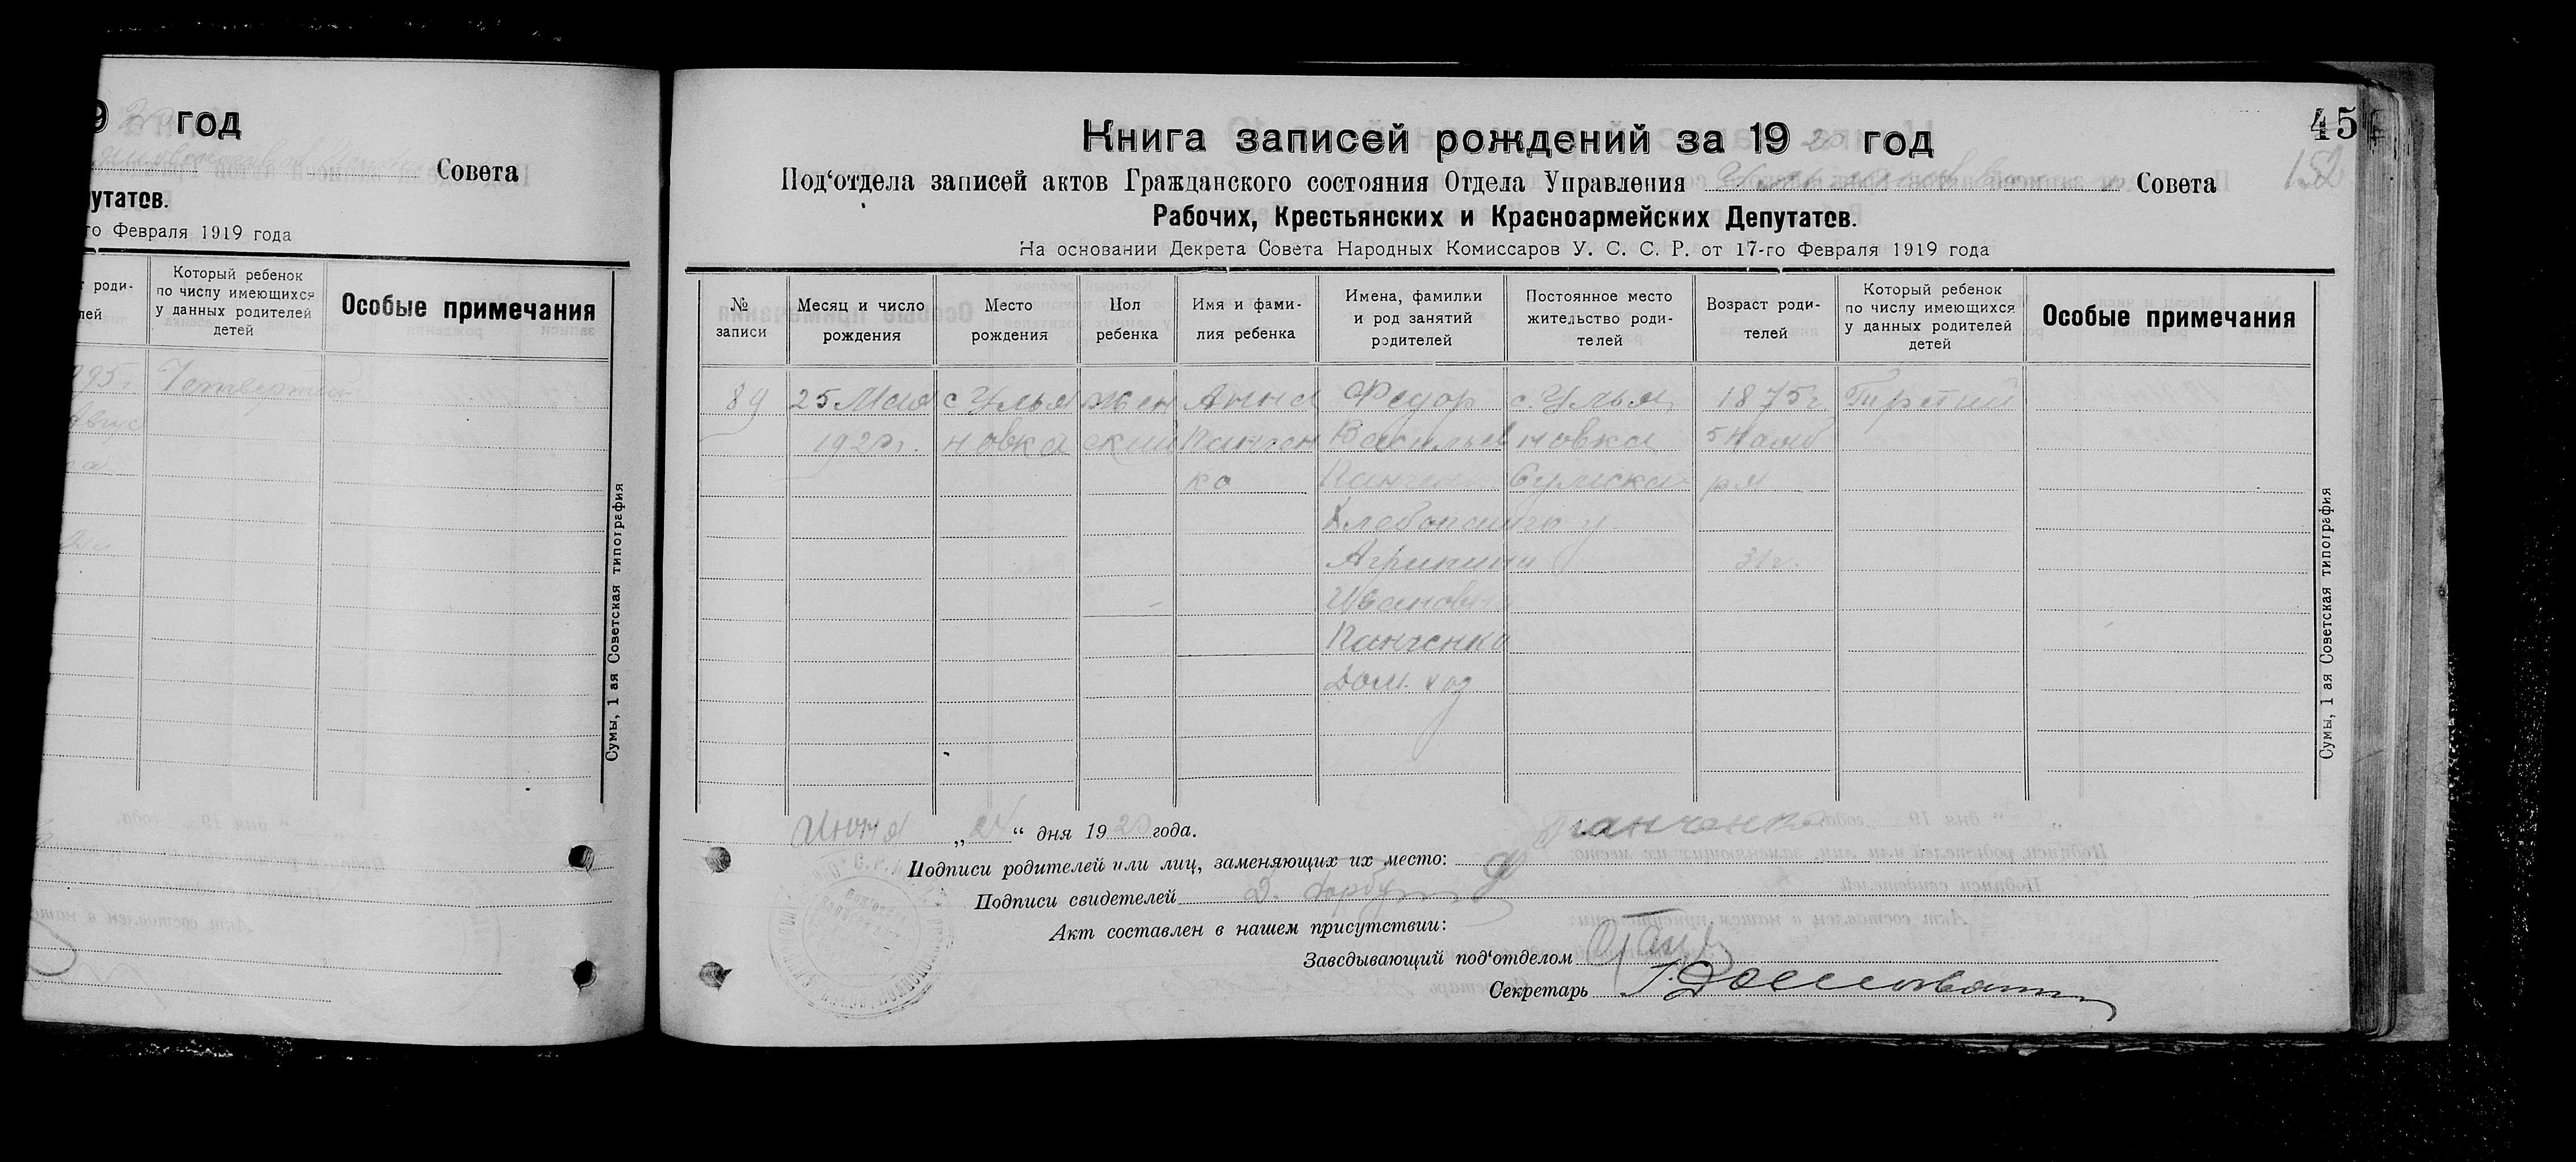 год
Совета
утатов.
го Февраля 1919 года
роди-
лей
Который ребенок
по числу имеющихся
у данных родителей
детей
Особые примечания
Четвертый
Сумы, 1 ая Советская типография
45
152
Книга записей рождений за 19 20 год
Под‘отдела записей актов Гражданского состояния Отдела Управления Совета
Рабочих, Крестьянских и Красноармейских Депутатов.
На основании Декрета Совета Народных Комиссаров У. С. С. Р. от 17-го Февраля 1919 года
№
записи
Месяц и число
рождения
Место
рождения
Пол
ребенка
Имя и фами-
лия ребенка
Имена, фамилии
и род занятий
родителей
Постоянное место
жительство роди-
телей
Возраст роди-
телей
Который ребенок
по числу имеющихся
у данных родителей
детей
Особые примечания
89 25 Мая с Улья жен Анна Федор с. Улья 1875г Третий
1920г. новка ский Панчен Васильев новка 5 Нояб
ко Панченко Сумской ря
Хлебопашец и
Агрипина 31г.
Ивановна
Панченко
Дом. хоз
Сумы, 1 ая Советская типография
Июня „24“ дня 1920 года. Панченко
Подписи родителей или лиц, заменяющих их место: Ф
Подписи свидетелей
Акт составлен в нашем присутствии:
Заведывающий под‘отделом
Секретарь